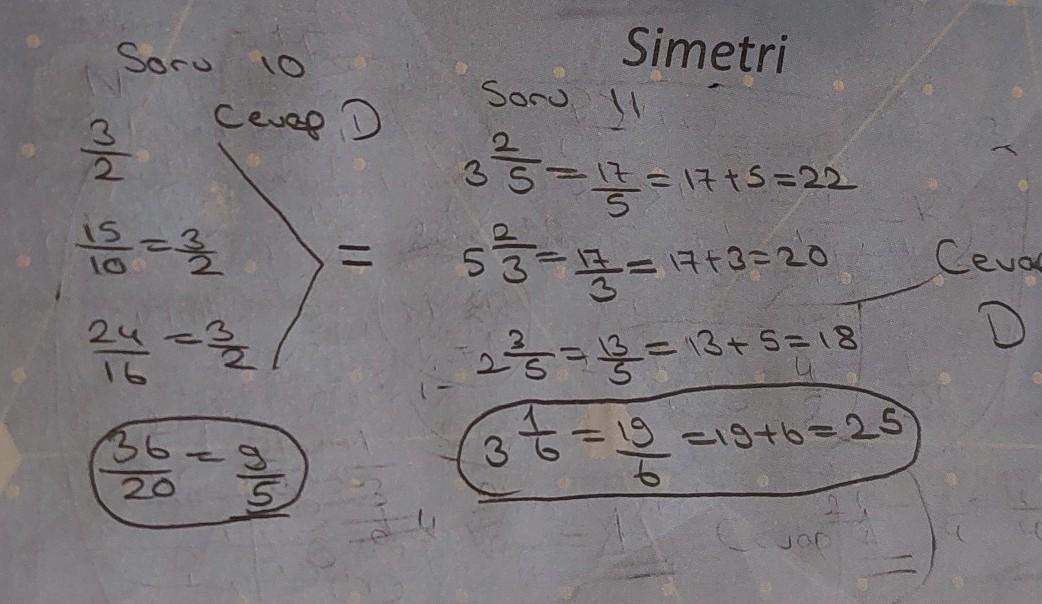 Soru 10
Cevap D
3/2
15/10 = 3/2
24/16 = 3/2
=
36/20 = 9/5
Simetri
Soru 11
3 2/5 = 17/5 = 17+5=22
5 2/3 = 17/3 = 17+3=20
2 3/5 = 13/5 = 13+5=18
3 1/6 = 19/6 = 19+6=25
Cevap
D